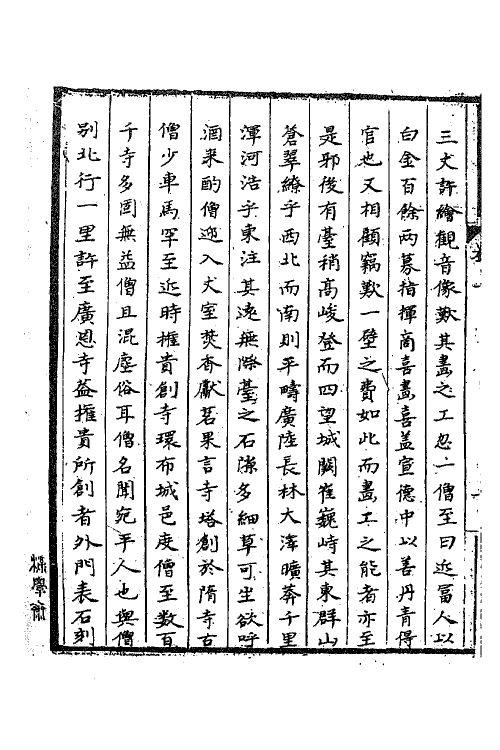 三丈許繪觀音像歎其畵之工忽一僧至曰近冨人以
白金百餘两募指揮商喜畵喜盖宣德中以善丹青得
官也又相顧竊歎一壁之費如此而畵工之能者亦至
是邪後有臺稍高峻登而四望城闕崔巍峙其東群山
蒼翠繚乎西北而南則平疇廣陸長林大澤曠莽千里
渾河浩乎東注其遠無際臺之石隙多細草可坐欲呼
酒来酌僧迎入丈室焚香獻茗果言寺塔創於隋寺古
僧少車馬罕至近時權貴創寺環布城邑度僧至数百
千寺多固無益僧且混塵俗耳僧名聞宛平人也與僧
别北行一里許至廣恩寺盖權貴所創者外門表石刻